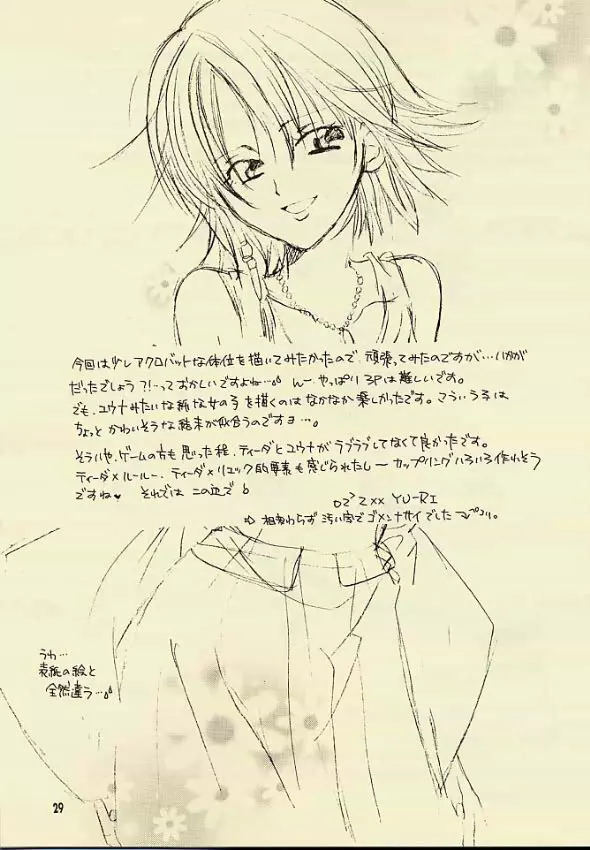 今回は少しアクロバットな体位を描いてみたかったので、頑張ってみたのですが…いかが
だったでしょう?!…っておかしいですよね… んー やっぱり 3Pは難しいです。
でも、ユウナみたいな純な女の子を描くのはなかなか楽しかったです。こういうコは
ちょっとかわいそうな結末が似合うのですヨ…。
そういや、ゲームの方も思った程、ティーダとユウナがラブラブしてなくて良かったです。
ティーダ×ルールー、ティーダ×リュック的要素も感じられたし〜 カップリングいろいろ作れそう
ですね♥ それでは この辺で
YU-RI
⇨ 相変わらず 汚い字で ゴメンナサイでした
うわ…
表紙の絵と
全然違う…
29